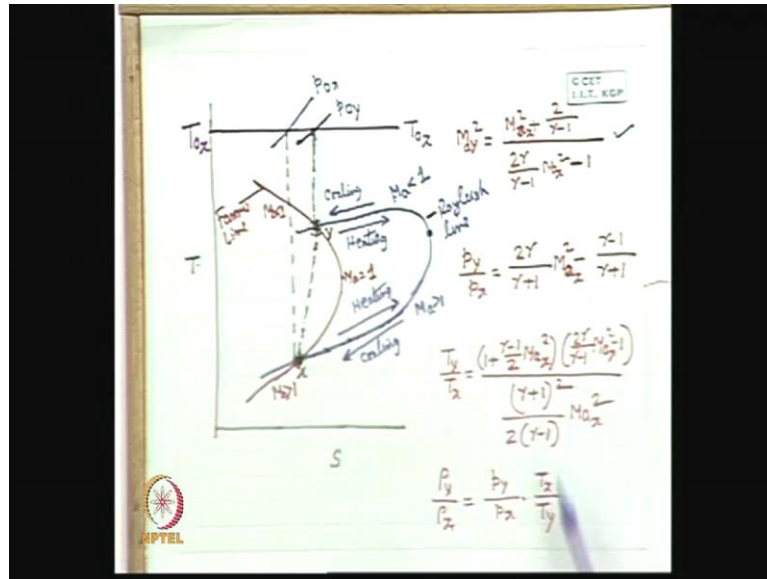 © CET
I.I.T. KGP
P0x
P0y
T0x
T0x
Fanno
Line
Cooling
Ma<1
Heating
Rayleigh
line
y
Ma=1
T
Heating
Ma>1
Cooling
x
Ma>1
S
May² = (Max² + 2/(γ-1)) / (2γ/(γ-1) Max² - 1) ✓
py/px = 2γ/(γ+1) Max² - (γ-1)/(γ+1)
Ty/Tx = (1+(γ-1)/2 Max²)(2γ/(γ-1) Max²-1) / ((γ+1)²/(2(γ-1)) Max²)
ρy/ρx = py/px · Tx/Ty
NPTEL